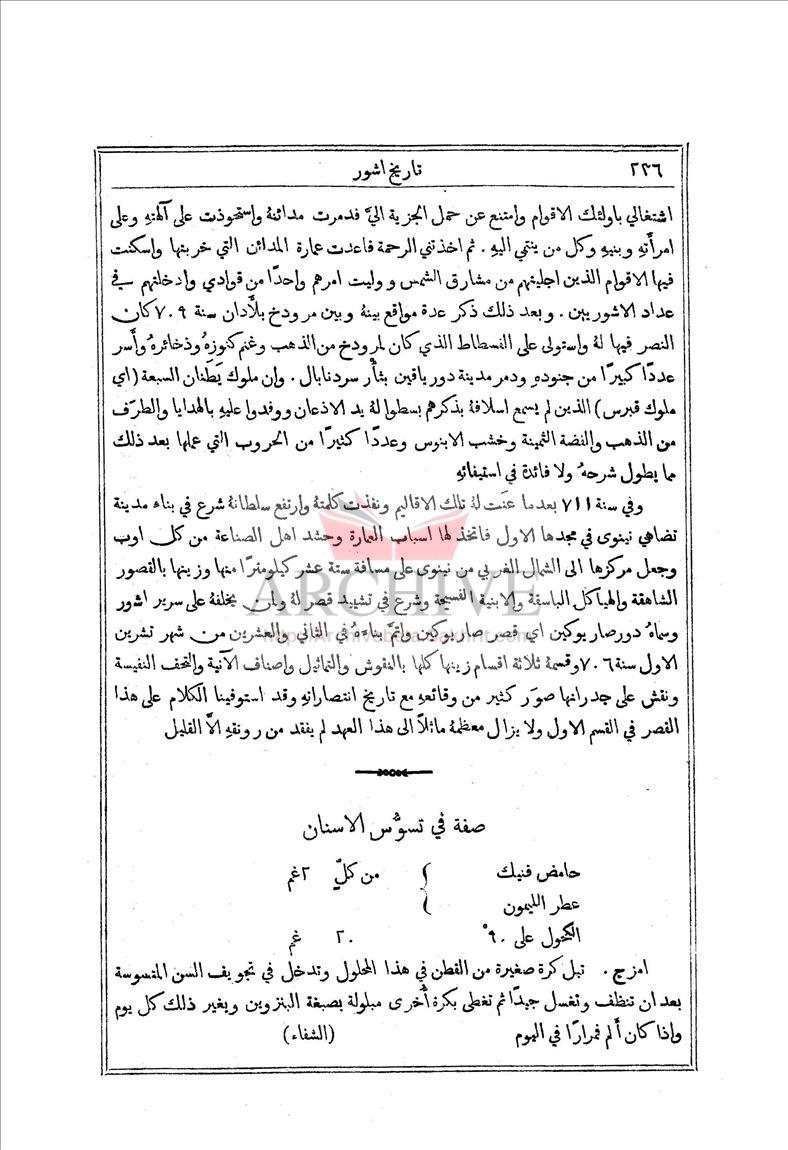 ٢٣٦ تاريخ اشور
اشتغالي باولئك الاقوام وامتنع عن حمل الجزية اليَّ فدمرت مدائنهُ واستحوذت على آلهتهِ وعلى
امرأَتهِ وبنيهِ وكل من ينتمي اليهِ . ثم اخذتني الرحمة فاعدت عمارة المدائن التي خربتها واسكنت
فيها الاقوام الذين اجليتهم من مشارق الشمس ووليت امرهم واحدًا من قوادي وادخلتهم في
عداد الاشوريين . وبعد ذلك ذكر عدة مواقع بينهُ وبين مرودخ بلاَّدان سنة ٧٠٩ كان
النصر فيها لهُ واستولى على الفسطاط الذي كان لمرودخ من الذهب وغنم كنوزهُ وذخائرهُ وأَسر
عددًا كبيرًا من جنودهِ ودمر مدينة دور ياقين بثأر سردنابال . وان ملوك يَطَنان السبعة (اي
ملوك قبرس) الذين لم يسمع اسلافهُ بذكرهم بسطوا لهُ يد الاذعان ووفدوا عليهِ بالهدايا والطُرَف
من الذهب والفضة الثمينة وخشب الابنوس وعددًا كثيرًا من الحروب التي عملها بعد ذلك
مما يطول شرحهُ ولا فائدة في استيفائهِ
وفي سنة ٧١١ بعد ما عنَت لهُ تلك الاقاليم ونفذت كلمتهُ وارتفع سلطانهُ شرع في بناء مدينة
تضاهي نينوى في مجدها الاول فاتخذ لها اسباب العمارة وحشد اهل الصناعة من كل اوب
وجعل مركزها الى الشمال الغربي من نينوى على مسافة ستة عشر كيلومترًا منها وزينها بالقصور
الشاهقة والهياكل الباسقة والابنية الفسيحة وشرع في تشييد قصر لهُ ولمن يخلفهُ على سرير اشور
وسماهُ دور صار يوكين اي قصر صار يوكين واتمَّ بناءهُ في الثاني والعشرين من شهر تشرين
الاول سنة ٧٠٦ وقسمهُ ثلاثة اقسام زينها كلها بالنقوش والتماثيل واصناف الآنية والتحف النفيسة
ونقش على جدرانها صوَر كثير من وقائعهِ مع تاريخ انتصاراتهِ وقد استوفينا الكلام على هذا
القصر في القسم الاول ولا يزال معظمهُ ماثلاً الى هذا العهد لم يفقد من رونقهِ الاَّ القليل
ARCHIVE
صفة في تسوُّس الاسنان
حامض فنيك } من كلٍّ ٢ غم
عطر الليمون
الكحول على ٩٠° ٢٠ غم
امزج . تبل كرة صغيرة من القطن في هذا المحلول وتدخل في تجويف السن المتسوسة
بعد ان تنظف وتغسل جيدًا ثم تغطى بكرة أُخرى مبلولة بصبغة البنزوين ويغير ذلك كل يوم
واذا كان أَلم فمرارًا في اليوم (الشفاء)